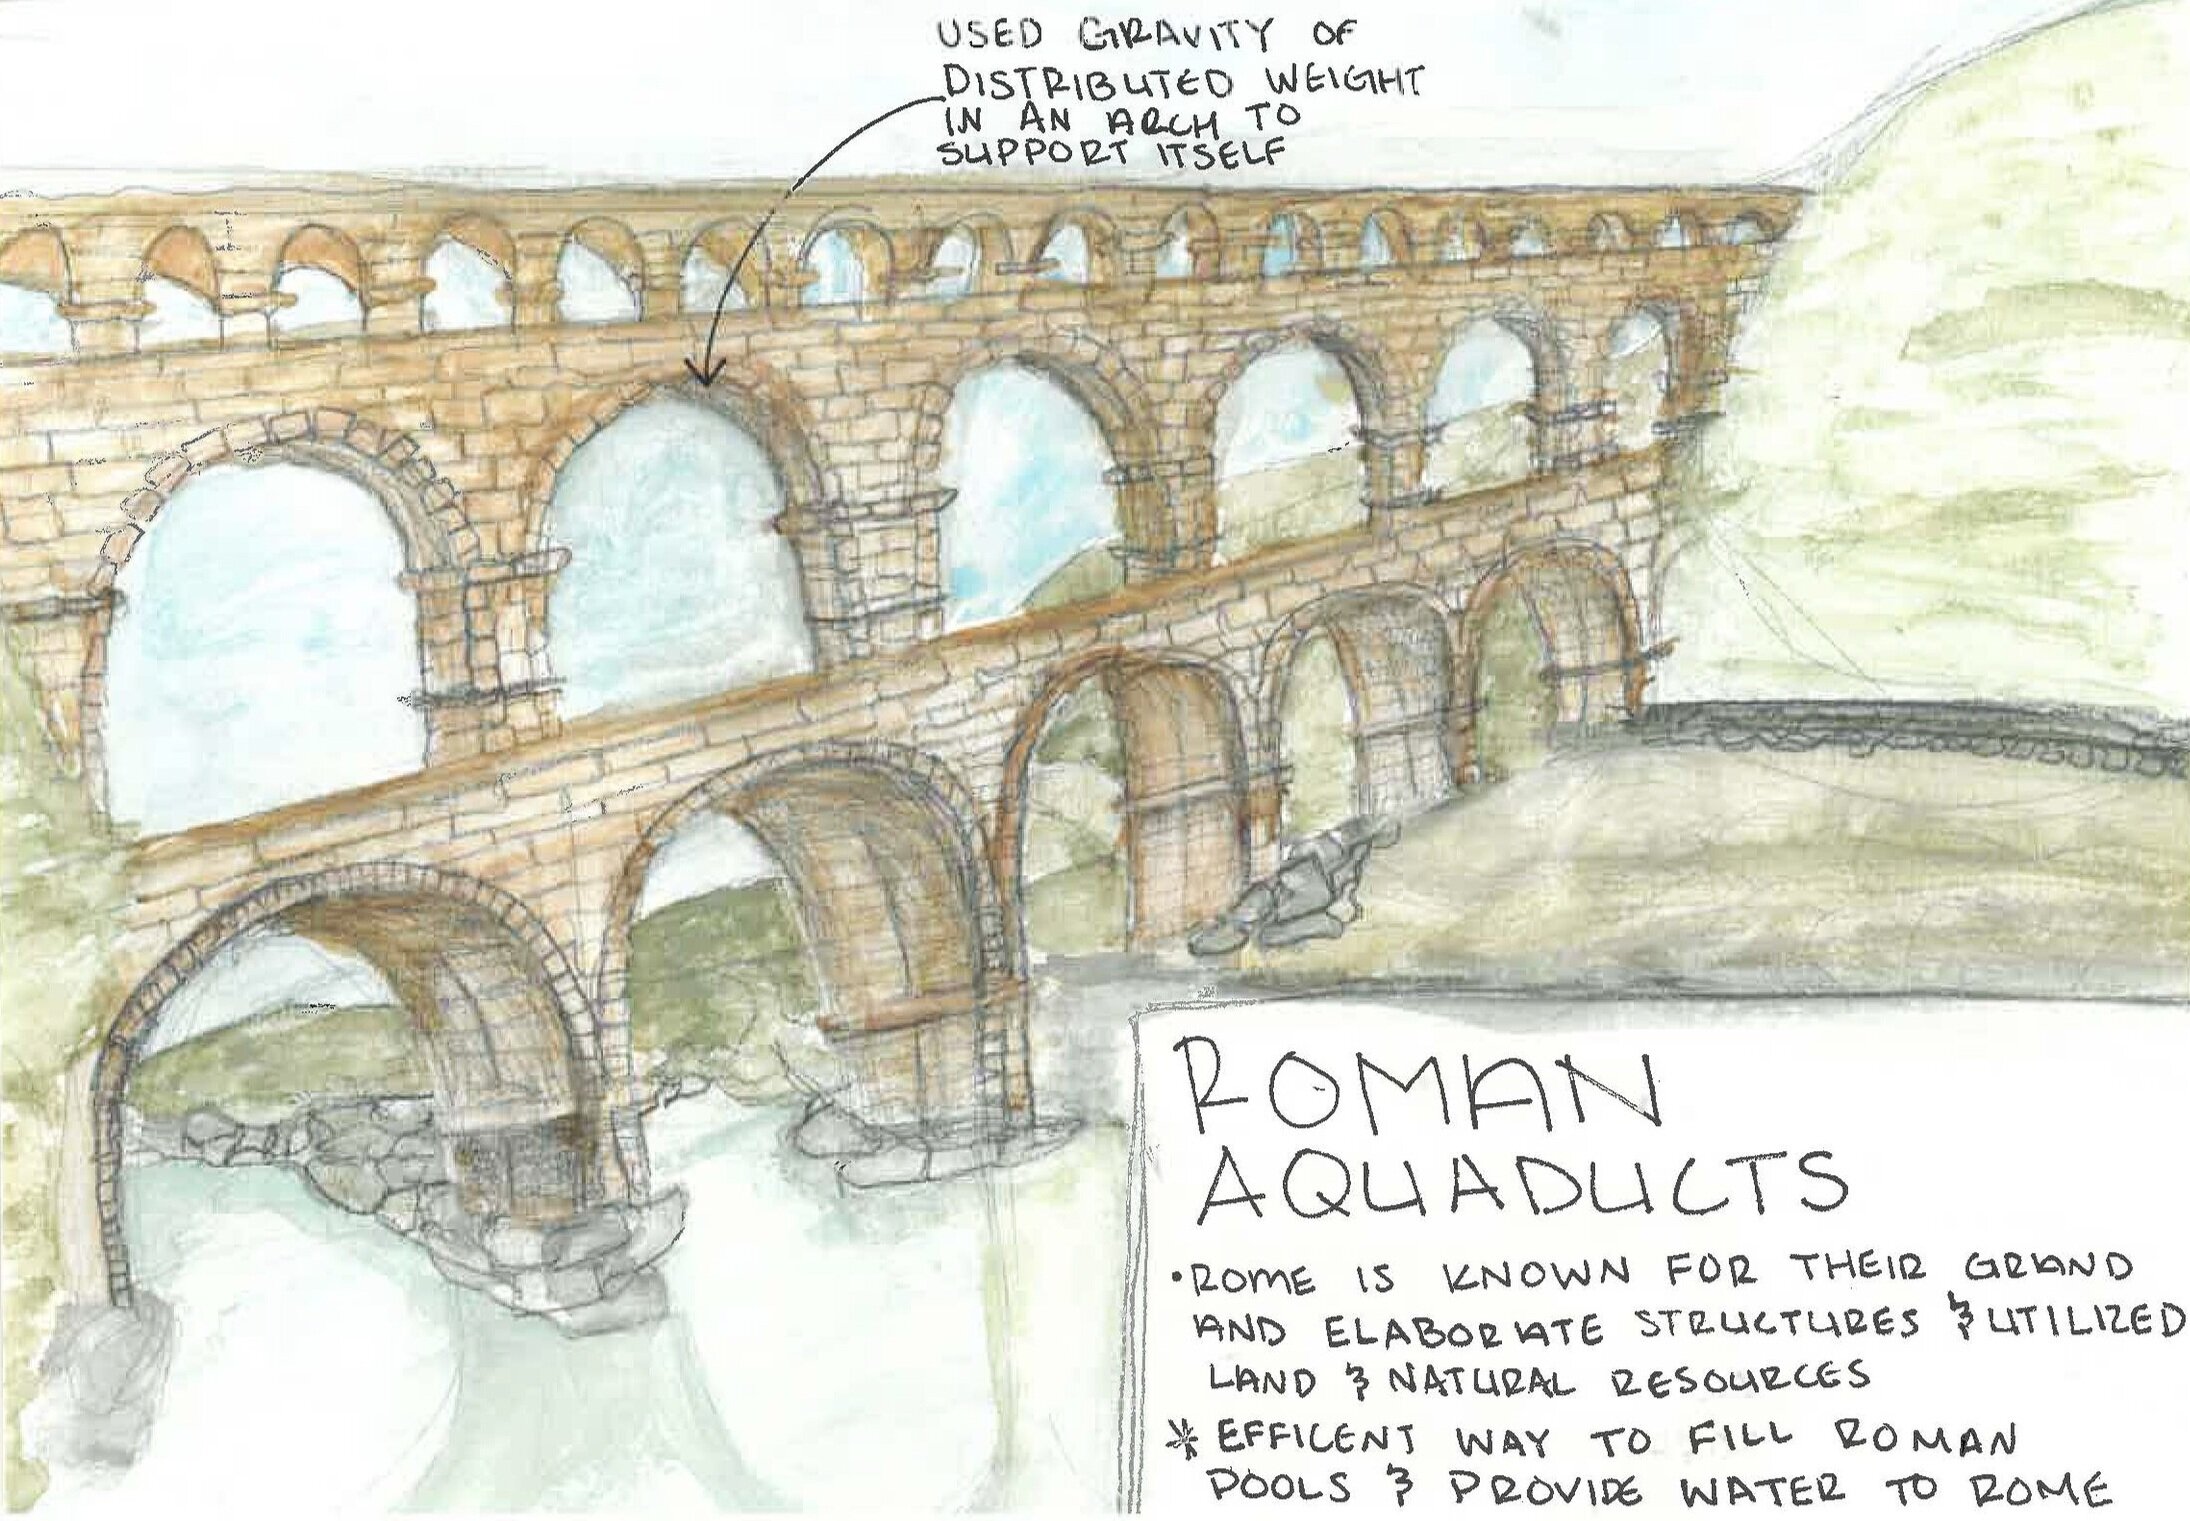 USED GRAVITY OF
DISTRIBUTED WEIGHT
IN AN ARCH TO
SUPPORT ITSELF
ROMAN
AQUADUCTS
•ROME IS KNOWN FOR THEIR GRAND
AND ELABORATE STRUCTURES & UTILIZED
LAND & NATURAL RESOURCES
* EFFICENT WAY TO FILL ROMAN
POOLS & PROVIDE WATER TO ROME